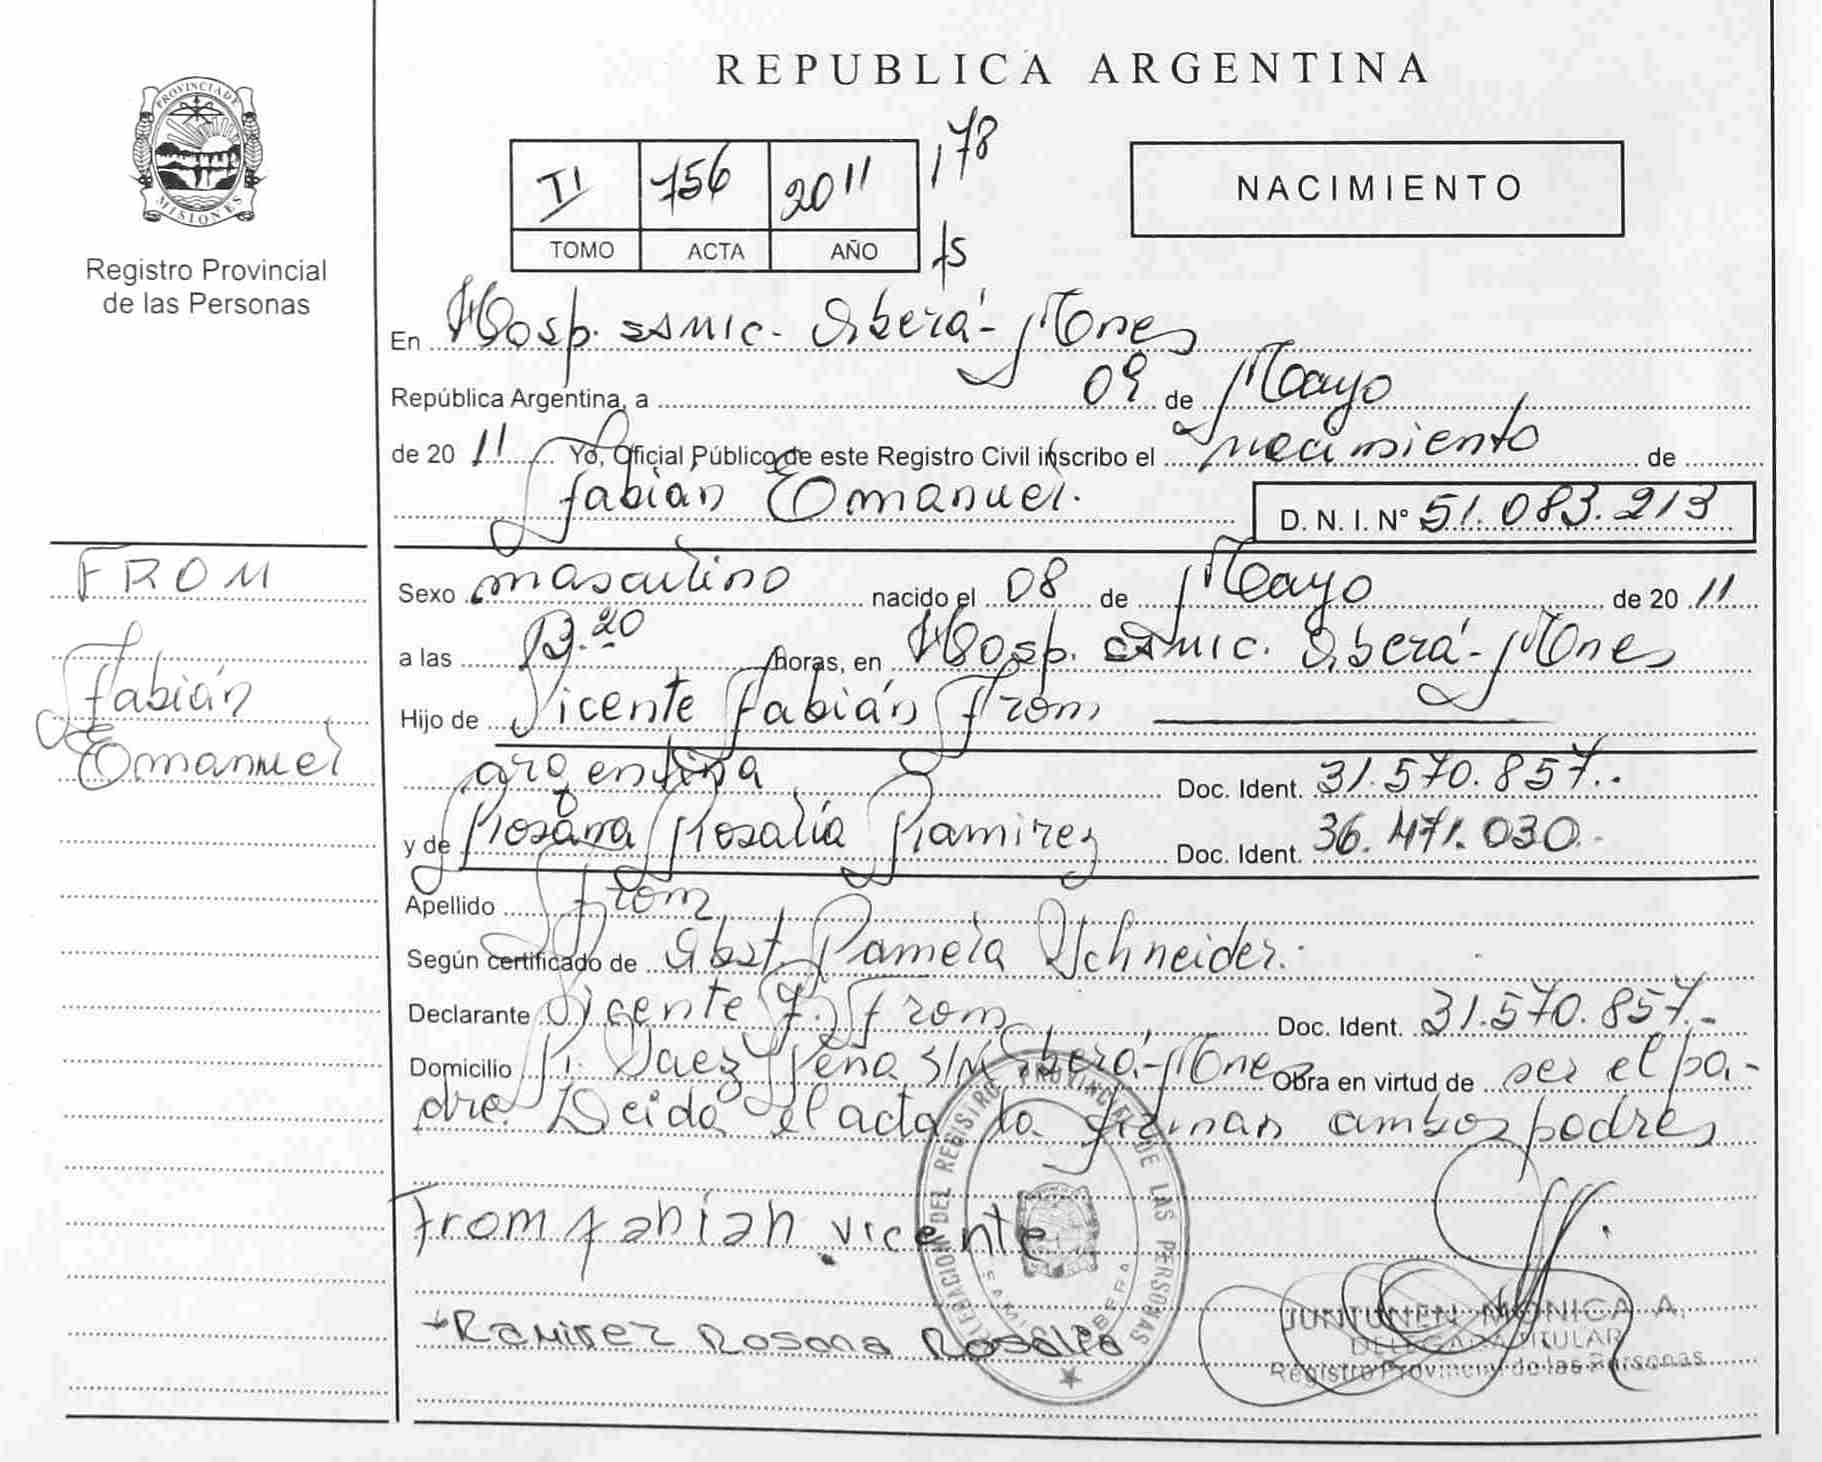 PROVINCIA DE
MISIONES
Registro Provincial
de las Personas
REPUBLICA ARGENTINA
TI 756 2011 178
TOMO ACTA AÑO fs
NACIMIENTO
En Hosp. SAMIC. Oberá - Mnes
República Argentina, a 09 de Mayo
de 20 11 Yo, Oficial Público de este Registro Civil inscribo el nacimiento de
Fabián Emanuel. D. N. I. N° 51.083.213
FROM
Fabián
Emanuel
Sexo masculino nacido el 08 de Mayo de 20 11
a las 13.20 horas, en Hosp. SAMIC. Oberá - Mnes
Hijo de Vicente Fabián From
argentina Doc. Ident. 31.570.857.-
y de Rosana Rosalía Ramirez Doc. Ident. 36.471.030.-
Apellido From
Según certificado de Obst. Pamela Schneider.
Declarante Vicente F. From Doc. Ident. 31.570.857.-
Domicilio Peña S/N Oberá - Mnes Obra en virtud de ser el pa-
dre. Leida el acta la firman ambos padres
From fabian vicente
Ramirez Rosana Rosalia
DELEGACION DEL REGISTRO PROVINCIAL DE LAS PERSONAS
OBERA
JUNTUNEN MONICA A.
DELEGADA TITULAR
Registro Provincial de las Personas